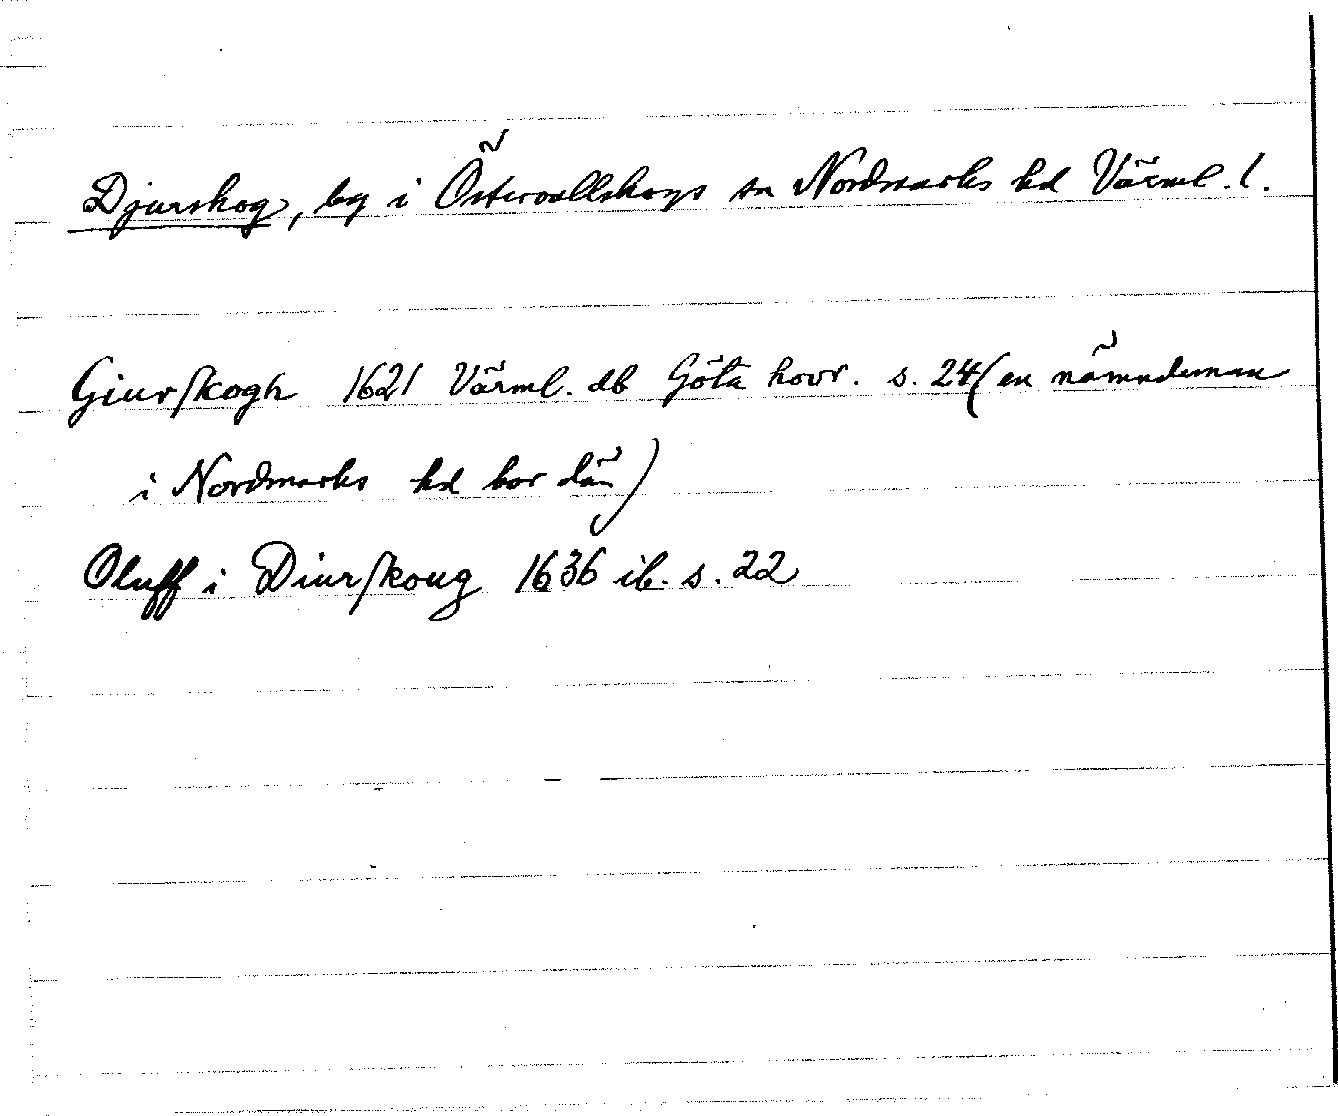 Djurskog, by i Östervallskogs sn Nordmarks hd Värml. l.
Giurſkogh 1621 Värml. db Göta hovr. s. 24 (en nämndeman
i Nordmarks hd bor där)
Oluff i Diurſkoug 1636 ib. s. 22